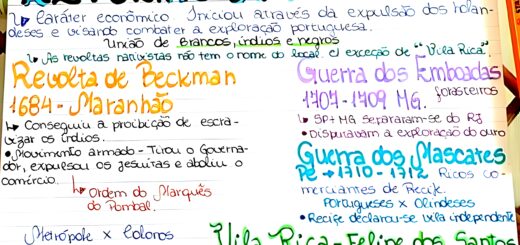 ↳ Caráter econômico Iniciou através da expulsão dos holan-
deses e visando combater a exploração portuguesa.
União de Brancos, índios e negros
↳ As revoltas nativistas não tem o nome do local. c/ exceção de "Vila Rica".
Revolta de Beckman
1684 - Maranhão
↳ Conseguiu a proibição de escra-
vizar os índios.
• Movimento armado - Tirou o Governa-
dor, expulsou os jesuítas e aboliu o
comércio.
↳ Ordem do Marquês
do Pombal.
Metrópole x Colonos
Guerra dos Emboadas
forasteiros
1707 - 1709 MG.
↳ SP + MG separaram-se do RJ
• Disputavam a exploração do ouro
Guerra dos Mascates
PE → 1710 - 1712 Ricos co-
merciantes de Recife.
Portugueses x Olindeses
• Recife declarou-se vila independente
Vila Rica - Felipe dos Santos